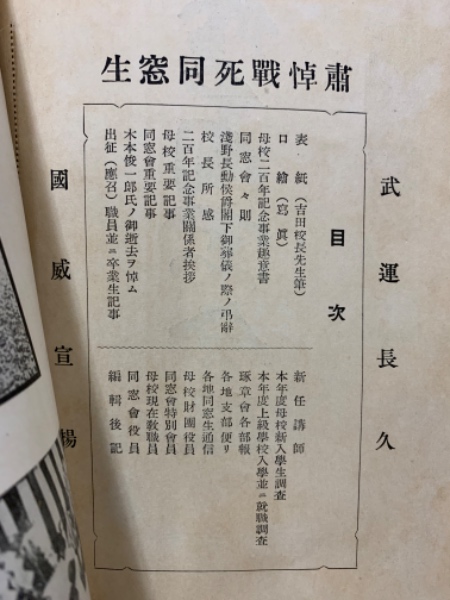 肅悼戰死同窓生
武運長久
目次
表紙(吉田校長先生筆)
口繪(寫眞)
母校二百年記念事業趣意書
同窓會々則
淺野長勳侯爵閣下御葬儀ノ際ノ弔辭
校長所感
二百年記念事業關係者挨拶
母校重要記事
同窓會重要記事
木本俊一郎氏ノ御逝去ヲ悼ム
出征(應召)職員並ニ卒業生記事
新任講師
本年度母校新入學生調査
本年度上級學校入學並ニ就職調査
琢章會各部報
各地支部便リ
各地同窓生通信
母校財團役員
同窓會特別會員
母校現在敎職員
同窓會役員
編輯後記
國威宣揚